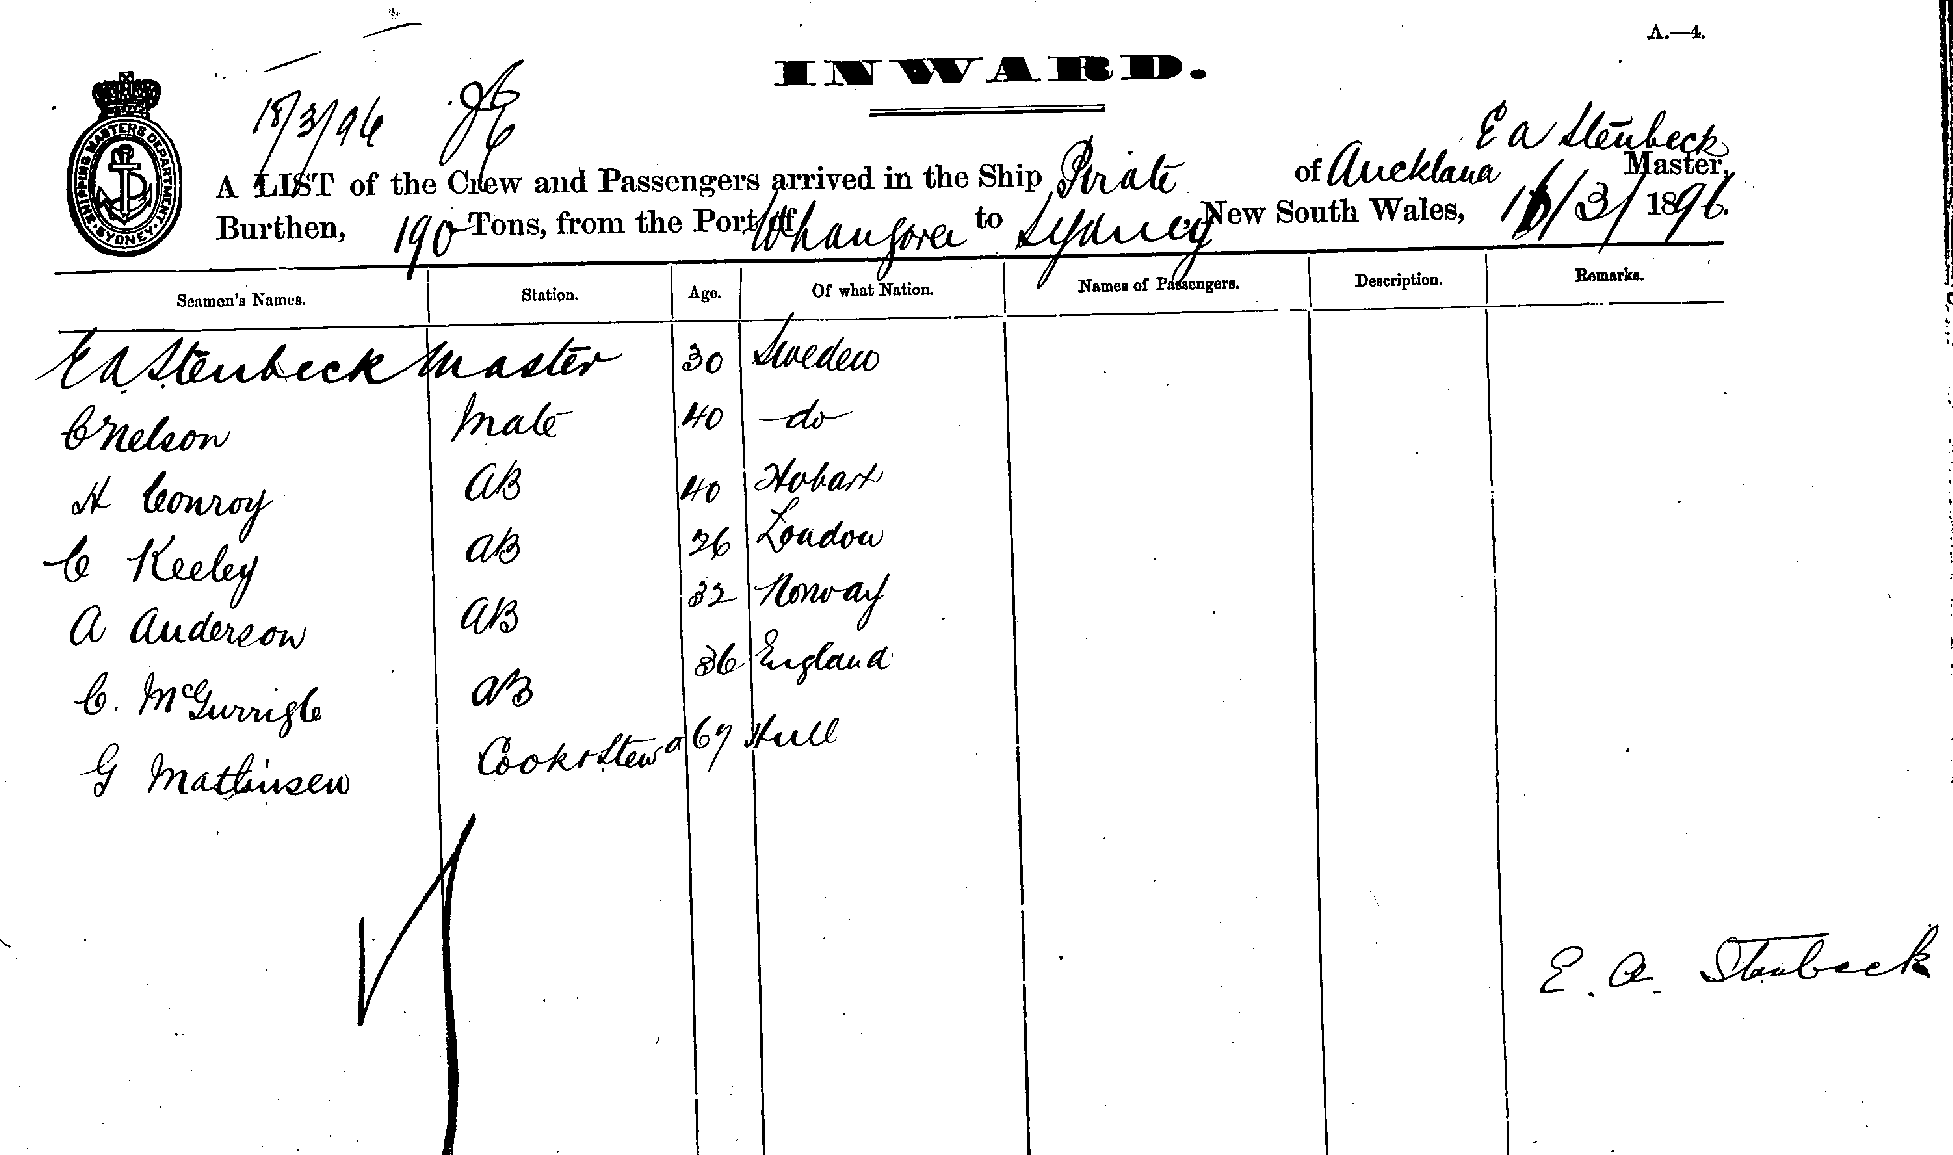 A.—4.
INWARD.
18/3/96
E A Stenbeck
A LIST of the Crew and Passengers arrived in the Ship Pirate of Auckland Master,
Burthen, 190 Tons, from the Port of Whangarei to Sydney New South Wales, 16/3/1896.
SHIPPING MASTERS DEPARTMENT SYDNEY
Seamen's Names. Station. Age. Of what Nation. Names of Passengers. Description. Remarks.
E A Stenbeck Master 30 Sweden
C Nelson Mate 40 —do—
H Conroy AB 40 Hobart
C Keeley AB 26 London
A Anderson AB 32 Norway
C. McGurrigle AB 36 England
G Mathinsen Cook & Stewd 67 Hull
E. A. Stenbeck